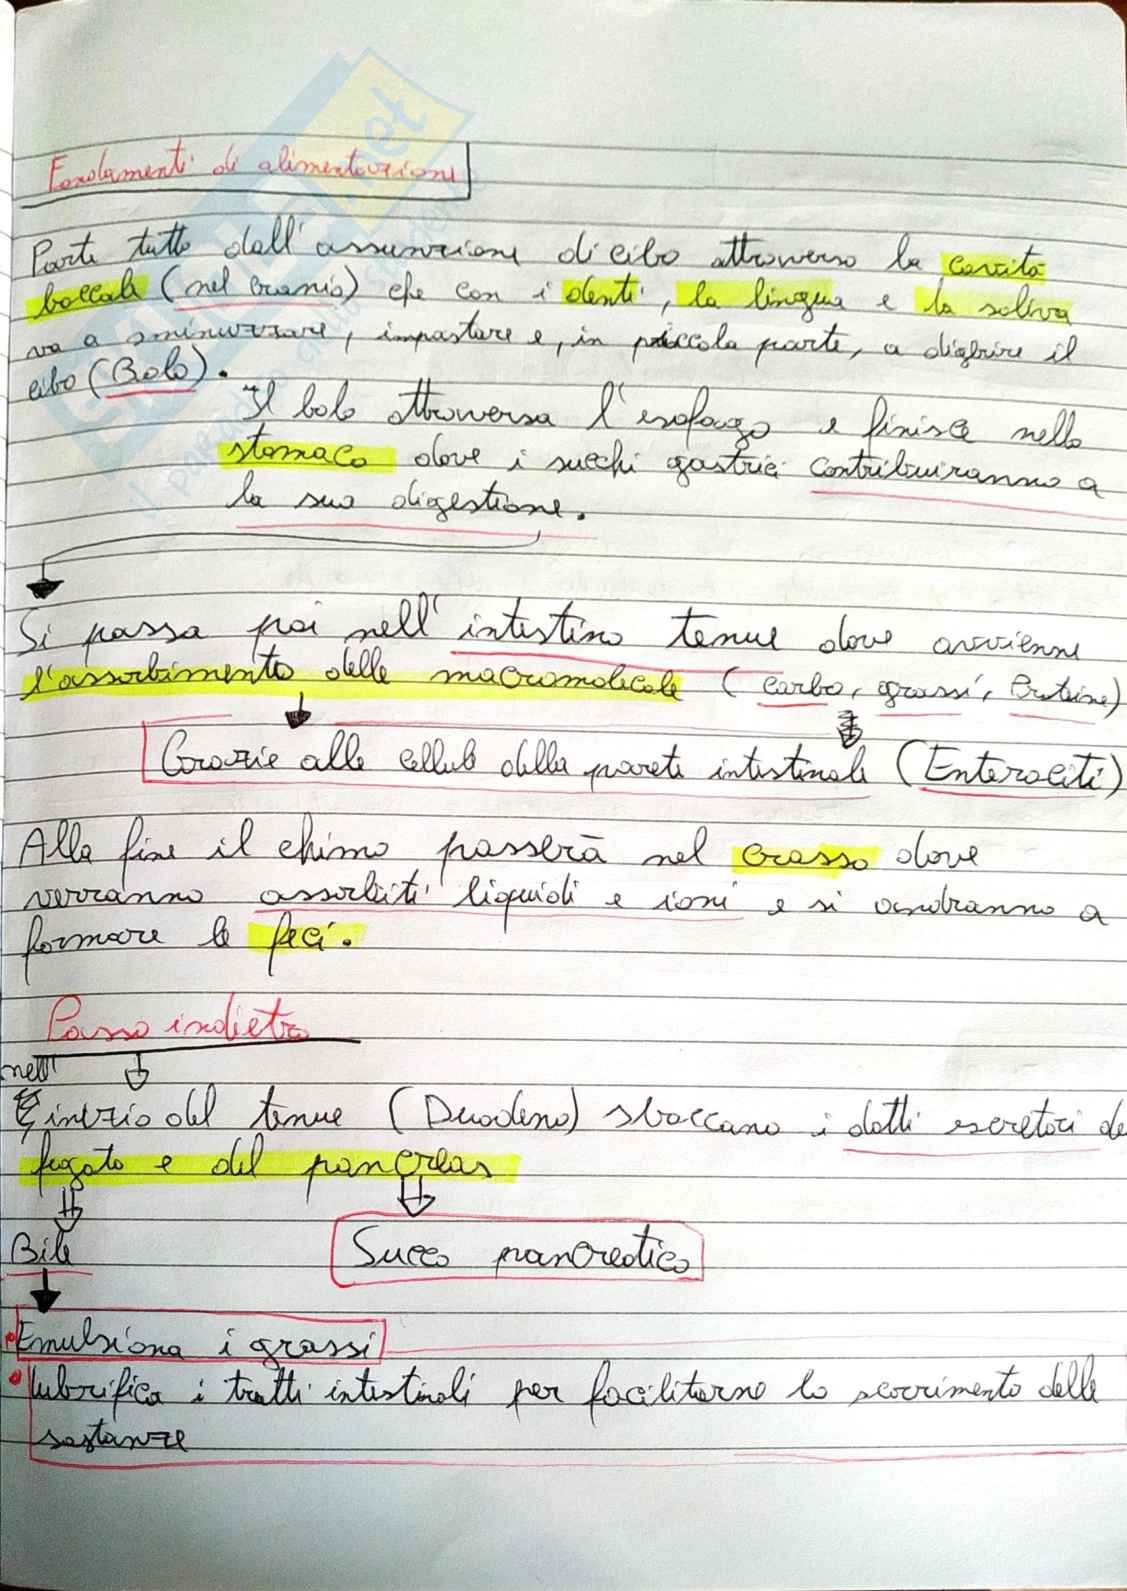 Fondamenti di alimentazione
Parte tutto dall'assunzione di cibo attraverso la cavità
boccale (nel cranio) che con i denti, la lingua e la saliva
va a sminuzzare, impastare e, in piccola parte, a digerire il
cibo (Bolo).
Il bolo attraversa l'esofago e finisce nello
stomaco dove i succhi gastrici contribuiranno a
la sua digestione.
Si passa poi nell'intestino tenue dove avviene
l'assorbimento delle macromolecole (carbo, grassi, Proteine)
Grazie alle cellule della parete intestinale (Enterociti)
Alla fine il chimo passerà nel crasso dove
verranno assorbiti liquidi e ioni e si andranno a
formare le feci.
Passo indietro
nell'
inizio del tenue (Duodeno) sboccano i dotti escretori de
fegato e del pancreas
Bile Succo pancreatico
• Emulsiona i grassi
• lubrifica i tratti intestinali per facilitarne lo scorrimento delle
sostanze